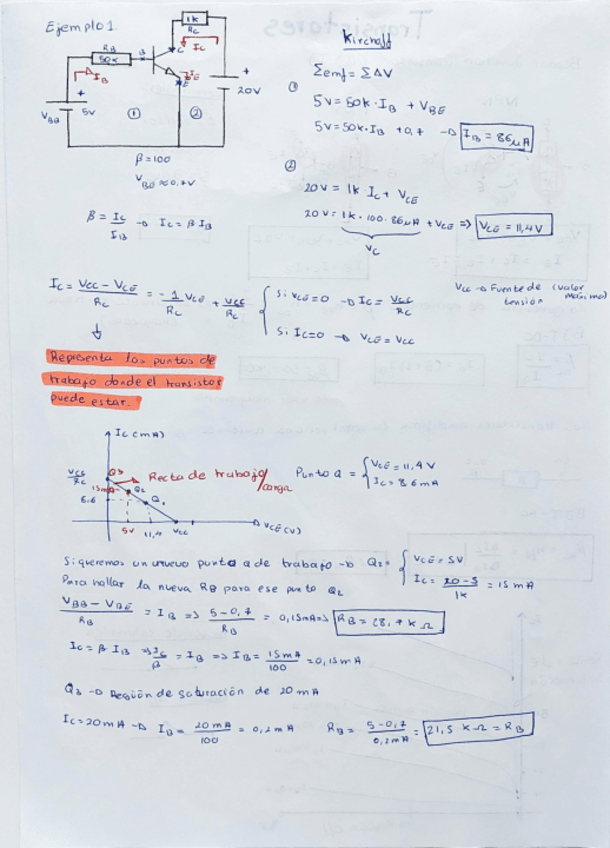 Ejemplo 1.
1k
Rc
Ic
C
RB
50k
B
IB
IE
E
+
20V
+
VBB
5V
①
②
β=100
VBE≈0,7V
β = Ic/IB → Ic = β IB
Kirchoff
Σemf = ΣΔV
①
5V = 50k·IB + VBE
5V = 50k·IB + 0,7 → IB = 86μA
②
20V = 1k Ic + VCE
20V = 1k·100·86μA + VCE => VCE = 11,4V
Vc
Ic = (Vcc - VCE)/Rc = -1/Rc VCE + Vcc/Rc
Si VCE=0 → Ic = Vcc/Rc
Si Ic=0 → VCE = Vcc
Vcc → Fuente de tensión (valor máximo)
Representa los puntos de
trabajo donde el transistor
puede estar.
Ic (mA)
Vcc/Rc
Q3
15mA
Q2
8.6
Q1
Recta de trabajo/carga
5V
11,4
Vcc
VCE(V)
Punto Q = { VCE = 11,4 V
Ic = 8.6 mA
Si queremos un nuevo punto Q de trabajo → Q2 = { VCE = 5V
Ic = (20-5)/1k = 15 mA
Para hallar la nueva RB para ese punto Q2
(VBB - VBE)/RB = IB => (5-0,7)/RB = 0,15mA => RB = 28,7 kΩ
Ic = β IB => Ic/β = IB => IB = 15mA/100 = 0,15mA
Q3 → Región de saturación de 20 mA
Ic = 20mA → IB = 20mA/100 = 0,2mA RB = (5-0,7)/0,2mA = 21,5 kΩ = RB